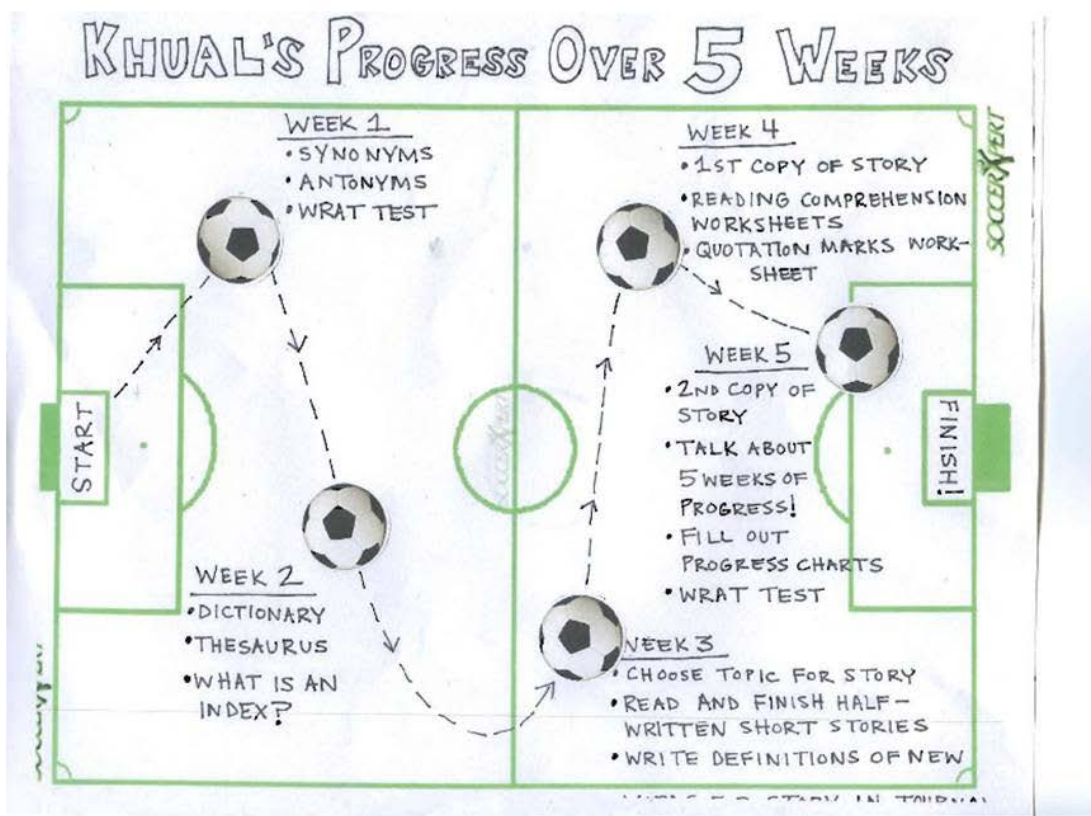 KHUAL'S PROGRESS OVER 5 WEEKS
START
WEEK 1
• SYNONYMS
• ANTONYMS
• WRAT TEST
WEEK 2
• DICTIONARY
• THESAURUS
• WHAT IS AN
INDEX?
WEEK 3
• CHOOSE TOPIC FOR STORY
• READ AND FINISH HALF-
WRITTEN SHORT STORIES
• WRITE DEFINITIONS OF NEW
STORY IN JOURNAL
WEEK 4
• 1ST COPY OF STORY
• READING COMPREHENSION
WORKSHEETS
• QUOTATION MARKS WORK-
SHEET
WEEK 5
• 2ND COPY OF
STORY
• TALK ABOUT
5 WEEKS OF
PROGRESS!
• FILL OUT
PROGRESS CHARTS
• WRAT TEST
FINISH!
SOCCERXPERT
SOCCERXPERT